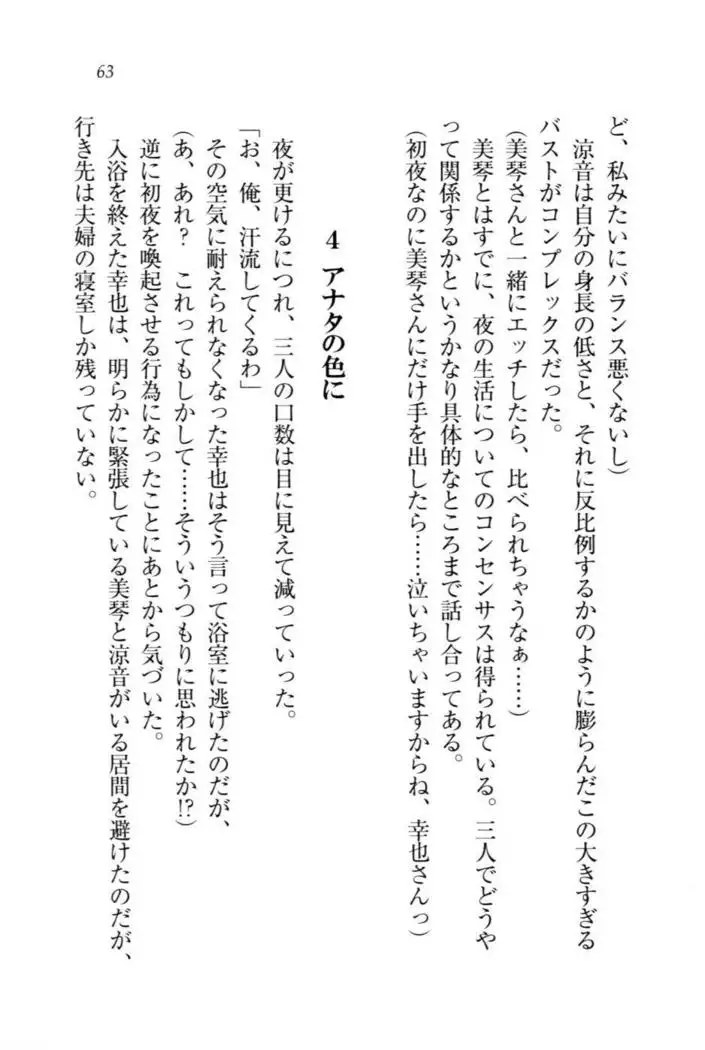 63
ど、私みたいにバランス悪くないし)
涼音は自分の身長の低さと、それに反比例するかのように膨らんだこの大きすぎる
バストがコンプレックスだった。
(美琴さんと一緒にエッチしたら、比べられちゃうなぁ……)
美琴とはすでに、夜の生活についてのコンセンサスは得られている。三人でどうや
って関係するかというかなり具体的なところまで話し合ってある。
(初夜なのに美琴さんにだけ手を出したら……泣いちゃいますからね、幸也さんっ)
4 アナタの色に
夜が更けるにつれ、三人の口数は目に見えて減っていった。
「お、俺、汗流してくるわ」
その空気に耐えられなくなった幸也はそう言って浴室に逃げたのだが、
(あ、あれ? これってもしかして……そういうつもりに思われたか!?)
逆に初夜を喚起させる行為になったことにあとから気づいた。
入浴を終えた幸也は、明らかに緊張している美琴と涼音がいる居間を避けたのだが、
行き先は夫婦の寝室しか残っていない。